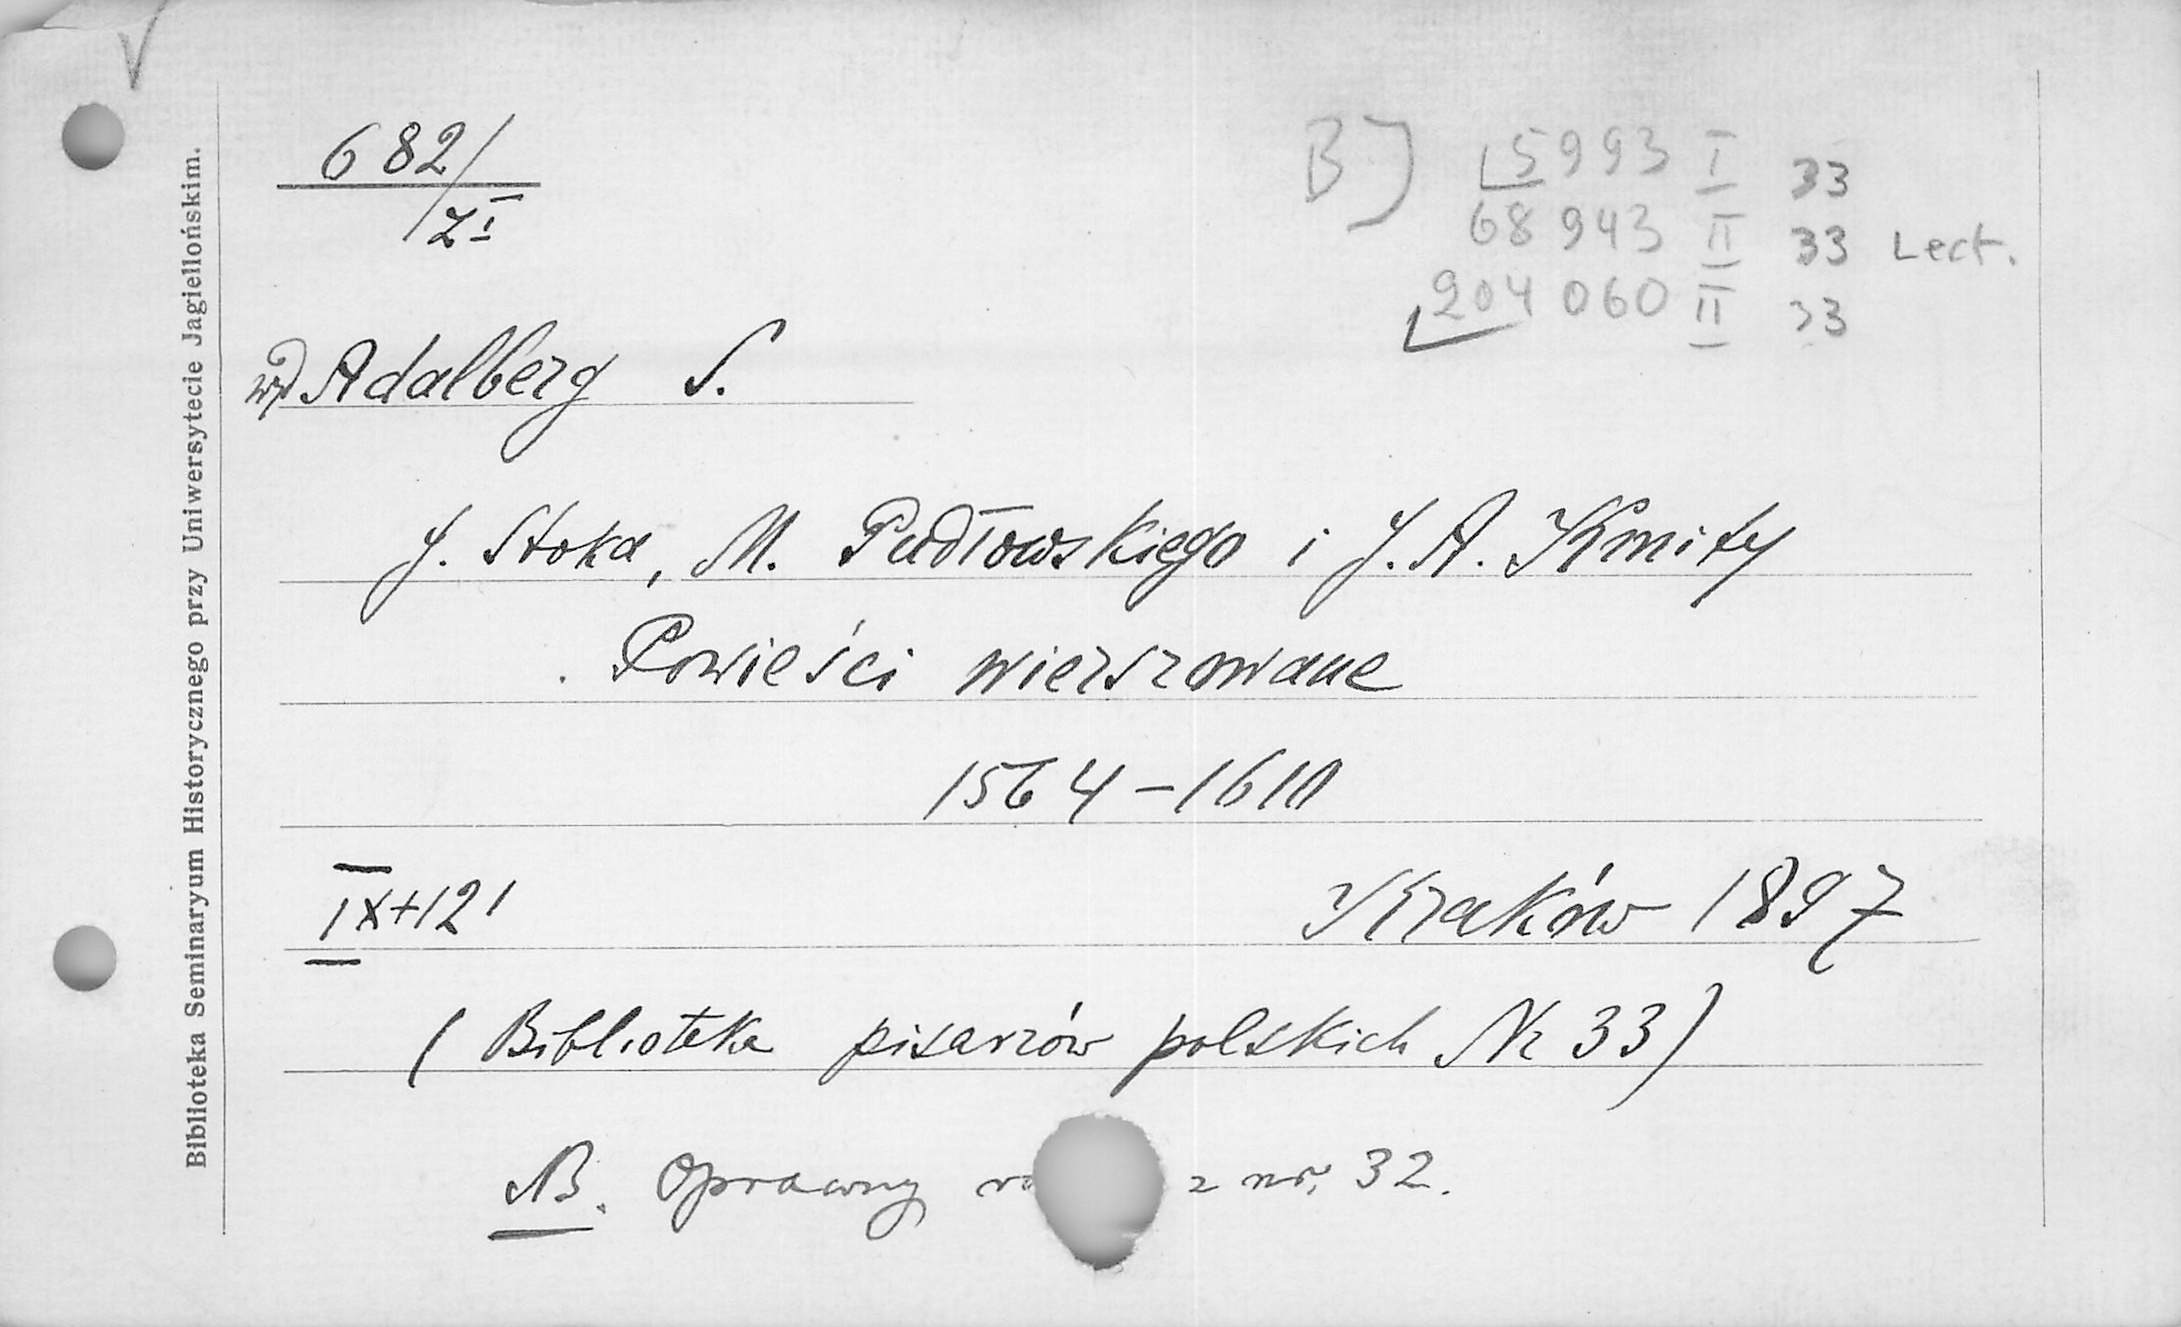 Biblioteka Seminaryum Historycznego przy Uniwersytecie Jagiellońskim.
682/
ZI
B) 5993 I 33
68943 II 33 Lect.
204060 II 33
wyd Adalberg S.
J. Stoka, M. Pudłowskiego i J. A. Kmity
Powieści wierszowane
1564-1610
IX+121
Kraków 1897
(Biblioteka pisarzów polskich Nr 33)
NB. Oprawny z nr. 32.